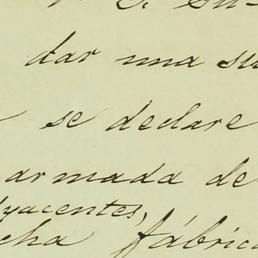 dar una su
se declare
armada de
yacentes,
cha fábric